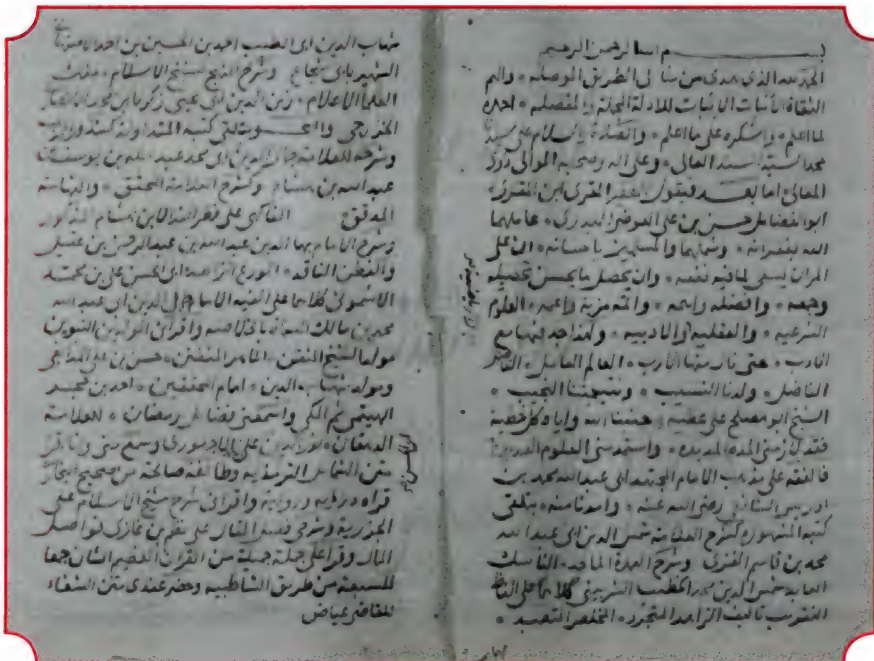 بسم الله الرحمن الرحيم
الحمد لله الذي هدى من شا الى الطريق الموصله والهم
الثقاة الأثبات الاثبات للادلة المجملة والمفصله احمده
لما اعلم واشكره على ما اعلم والصلاة والسلام على سيدنا
محمد السند العالي وعلى اله وصحبه الموالى ذوى
المعالى اما بعد فيقول الفقير المقرى ابن المقرى
ابو الفضايل حسن بن على العوضى البدرى عاملهما
الله بغفرانه وشملهما والمسلمين باحسانه ان على
المرء ان يسعى لما فيه نفعه وان يحصل ما يحسن تحصيله
وجمعه وافضله رابحه واتمه مزية واعمه العلوم
الشرعيه والعقليه والادبيه ولهذا جد فيها مع
الدأب حتى نال منها المأرب العالم العامل الفاضل
الفاضل ولدنا النسيب ونتيجتنا النجيب
الشيخ ابو مصلح على عطيه هنئنا الله واياه كل عطيه
فقد لازمنى المدة المديده واستمد منى العلوم العديده
فالفقه على مذهب الامام المجتهد ابى عبد الله محمد بن
ادريس الشافعى رضى الله عنه وامدنا منه بتلقى
كتبه المشهوره كشرح العلامة شمس الدين ابى عبد الله
محمد بن قاسم الغزى وشرح العمدة الماجد الناسك
العابد شمس الدين محمد الخطيب الشربينى كلاهما على الفاظ
التقريب تاليف الزاهد المتجرد المخلص المتعبد
شهاب الدين ابى الطيب احمد بن الحسين بن احمد الاصفهانى
الشهير بابى شجاع وشرح المنهج لشيخ الاسلام ملك
العلما الاعلام زين الدين ابى يحيى زكريا بن محمد الانصارى
الخزرجى والنحو بتلقى كتبه المتداولة كشذور الذهب
وشرحه للعلامة جمال الدين ابى محمد عبد الله بن يوسف بن
عبد الله بن هشام وكشرح العلامة المحقق والفهامة
المدقق الفاكهى على قطر الندا لابن هشام المذكور
وشرح الامام بها الدين عبد الله بن عبد الرحمن بن عقيل
والفطن الناقد الورع الزاهد ابى الحسن على بن محمد
الاشمونى كلاهما على الفية الامام جمال الدين ابى عبد الله
محمد بن مالك المسماة بالخلاصه واقرانى المولدين النبويين
مولد الشيخ المتقن الماهر المتفنن حسن بن على المدابغى
ومولد شهاب الدين امام المحققين احمد بن حجر
الهيتمى ثم المكى واسمعنى فضايل رمضان للعلامة
نور الدين على الاجهورى وسمع منى وناقر
متن الشمايل الترمذيه وطايفة صالحة من صحيح البخارى
قراه دراية ورواية واقرانى شرح شيخ الاسلام على
الجزرية وشرحى على نظم بن غازى فواصل
المال وقرا على جملة جميلة من القران العظيم الشان جمعا
للسبعة من طريق الشاطبيه وحضر عندى متن الشفاء
للقاضى عياض